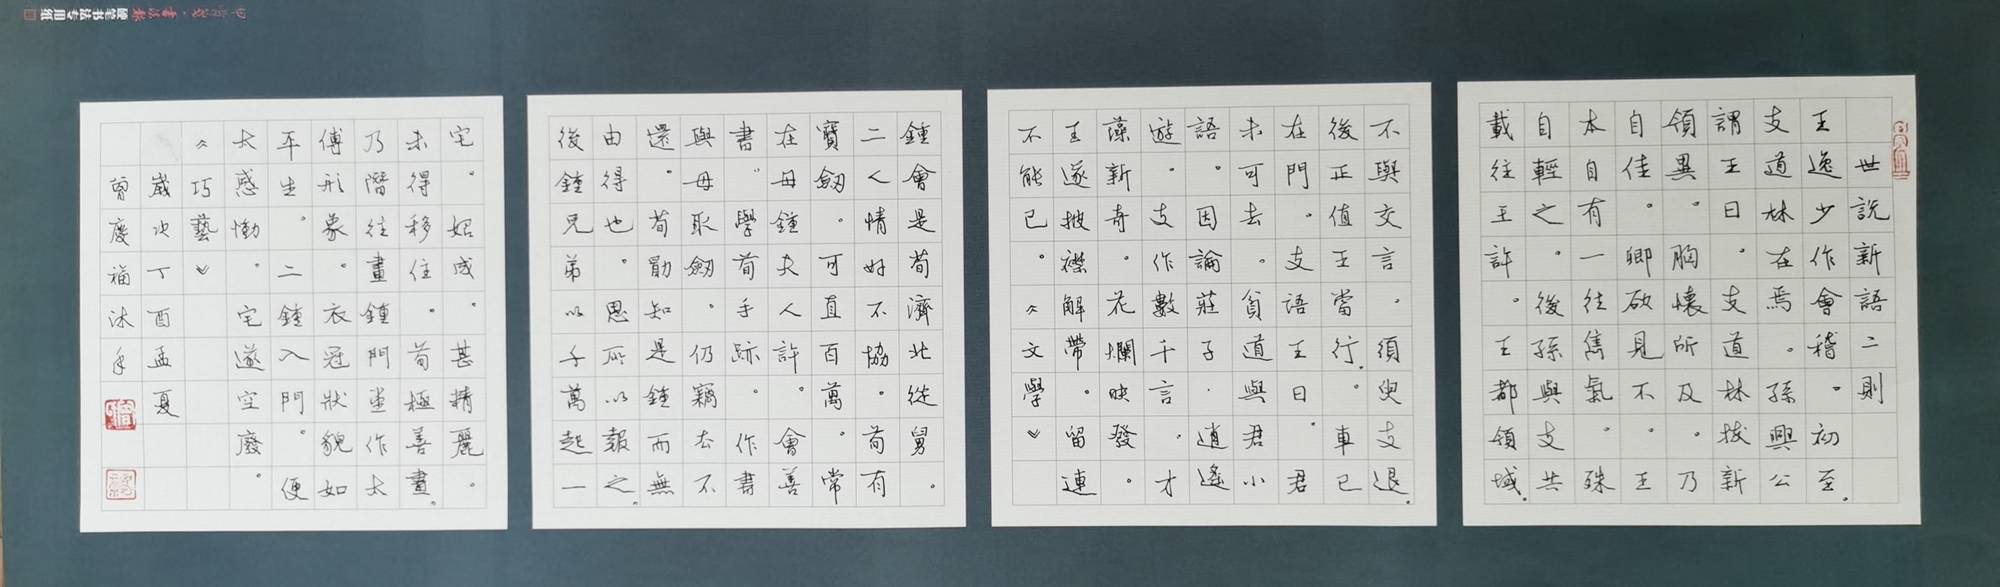 世說新語二則
王逸少作會稽。初至。
支道林在焉。孫興公
謂王曰。支道林拔新
領異。胸懷所及。乃
自佳。卿欲見不。王
本自有一往雋氣。殊
自輕之。後孫與支共
載往王許。王都領域。
不與交言。須臾支退。
後正值王當行。車已
在門。支語王曰。君
未可去。貧道與君小
語。因論莊子·逍遙
遊。支作數千言。才
藻新奇。花爛映發。
王遂披襟解帶。留連
不能已。《文學》
鍾會是荀濟北從舅。
二人情好不協。荀有
寶劒。可直百萬。常
在母鍾夫人許。會善
書。學荀手跡。作書
與母取劒。仍竊去不
還。荀勖知是鍾而無
由得也。思所以報之。
後鍾兄弟以千萬起一
宅。始成。甚精麗。
未得移住。荀極善畫。
乃潛往畫鍾門堂作太
傅形象。衣冠狀貌如
平生。二鍾入門。便
太感慟。宅遂空廢。
《巧藝》
歲次丁酉孟夏
曾慶福沐手
書法報
硬笔书法专用纸